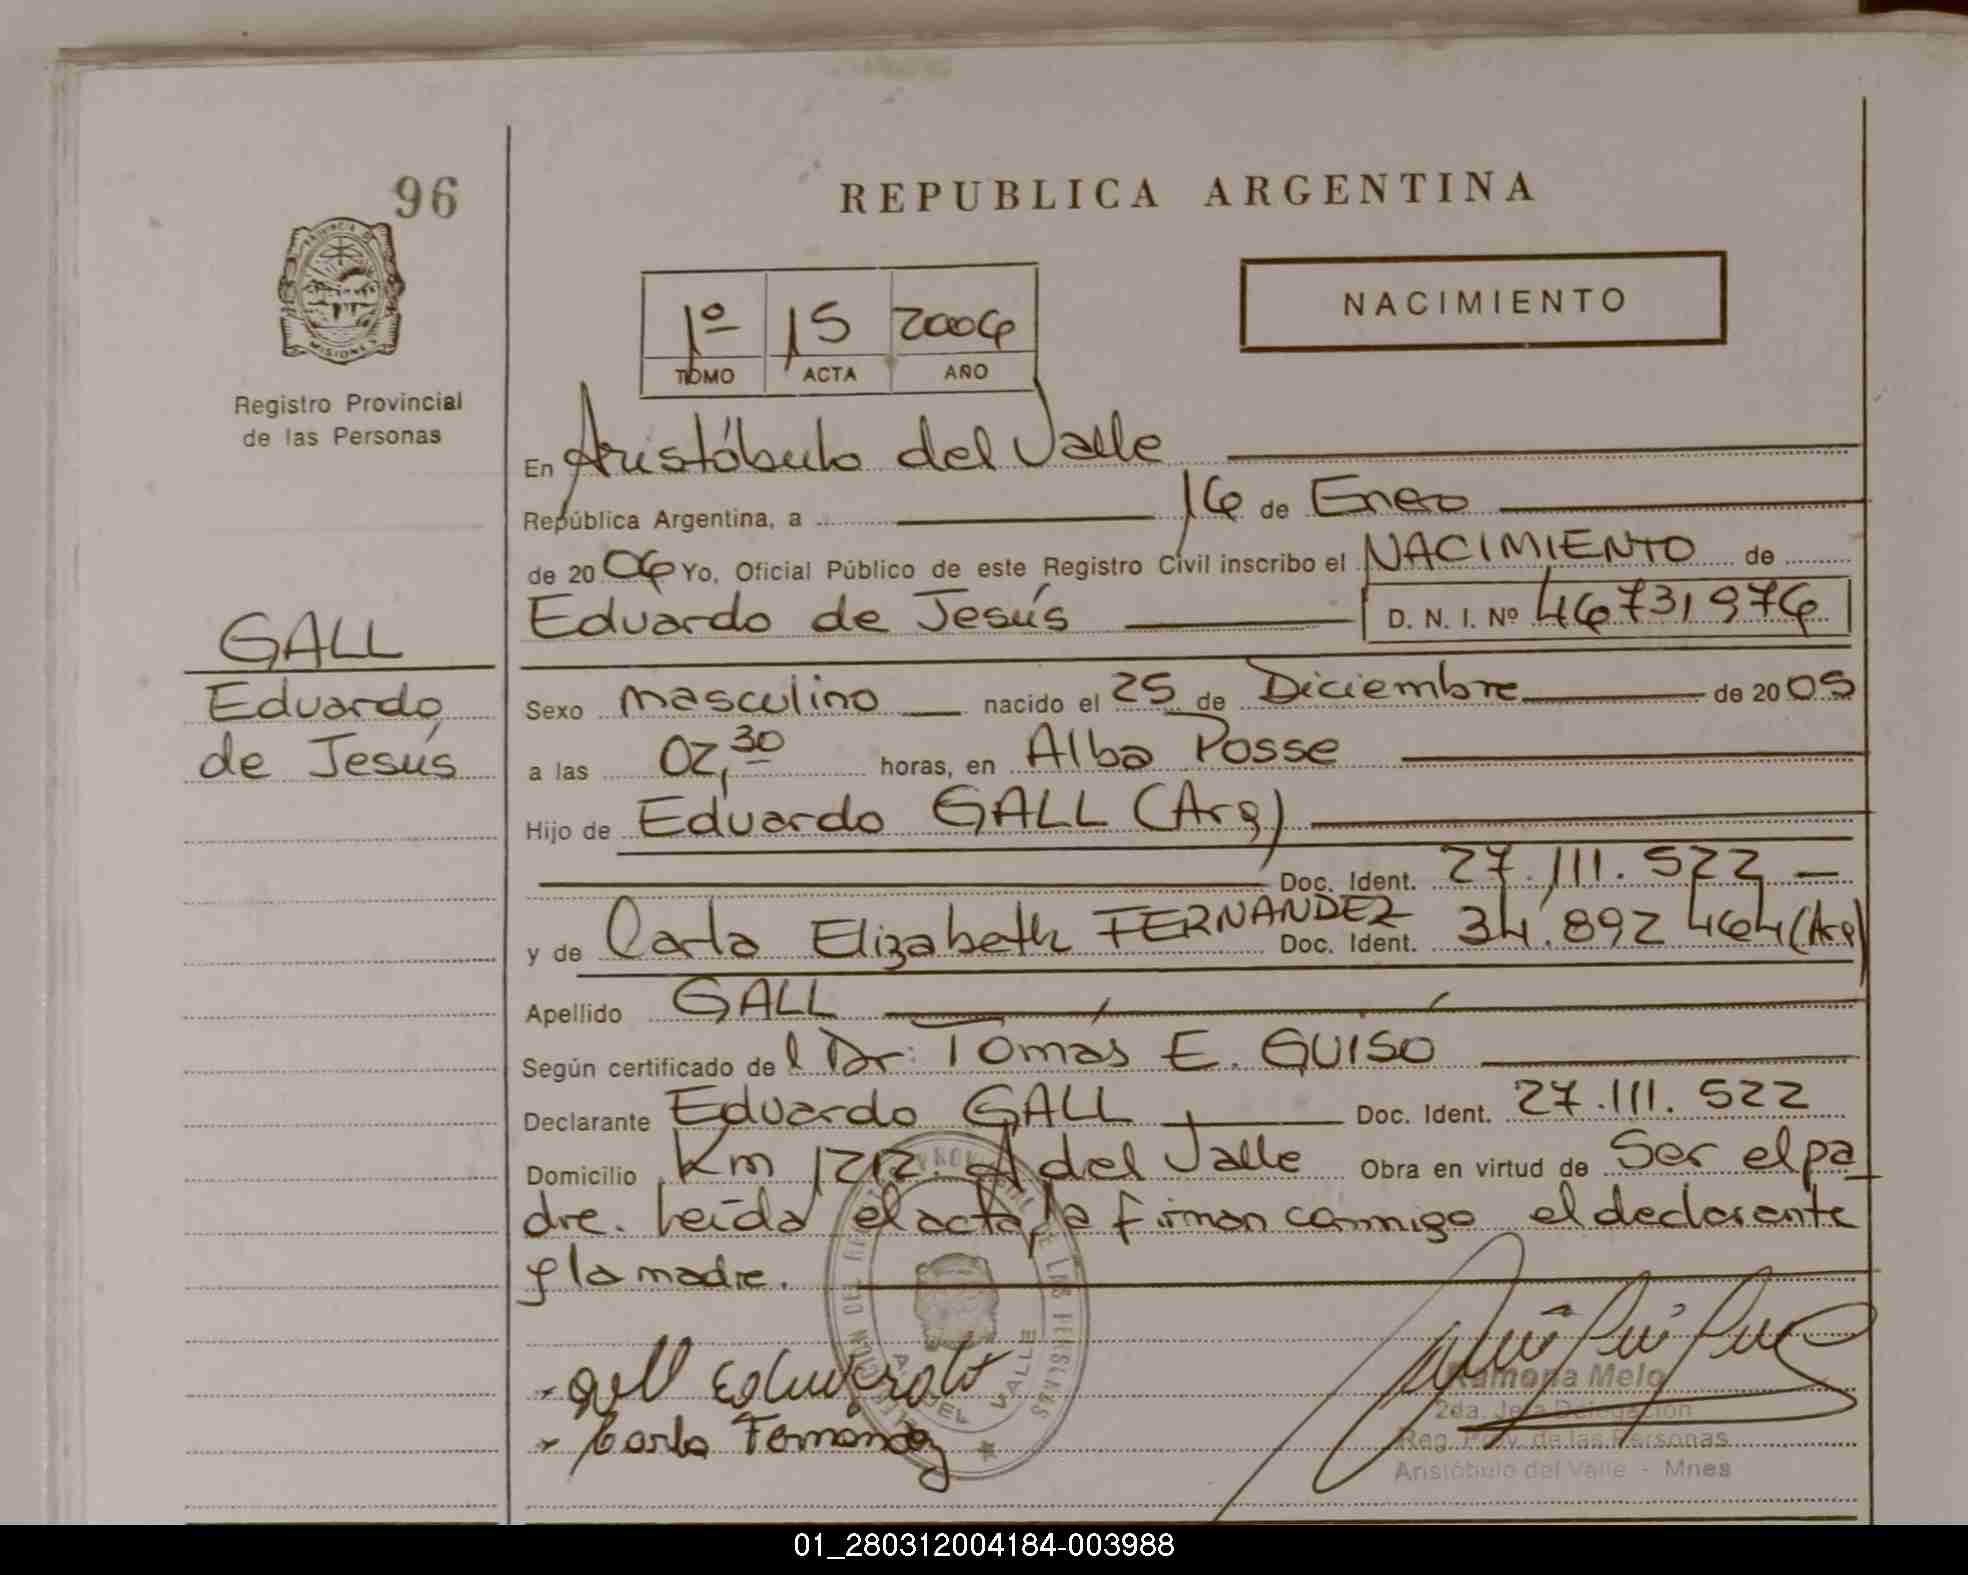 96
REPUBLICA ARGENTINA
PROVINCIA DE
MISIONES
Registro Provincial
de las Personas
NACIMIENTO
1º 15 2006
TOMO ACTA AÑO
En Aristóbulo del Valle
República Argentina, a 16 de Enero
de 20 06 Yo, Oficial Público de este Registro Civil inscribo el NACIMIENTO de
Eduardo de Jesús D. N. I. Nº 46731976
GALL
Eduardo
de Jesús
Sexo masculino nacido el 25 de Diciembre de 20 05
a las 02,30 horas, en Alba Posse
Hijo de Eduardo GALL (Arg)
Doc. Ident. 27.111.522
y de Carla Elizabeth FERNANDEZ Doc. Ident. 34.892 464 (Arg)
Apellido GALL
Según certificado de l Dr. Tomás E. GUISO
Declarante Eduardo GALL Doc. Ident. 27.111.522
Domicilio Km 1212. A del Valle Obra en virtud de Ser el pa
dre. Leída el acta, la firman conmigo el declarante
y la madre.
Gall Eduardo
Carla Fernandez
A. DEL VALLE
Ramona Melo
2da. Jefa Delegación
Reg. Prov. de las Personas
Aristóbulo del Valle - Mnes
01_280312004184-003988